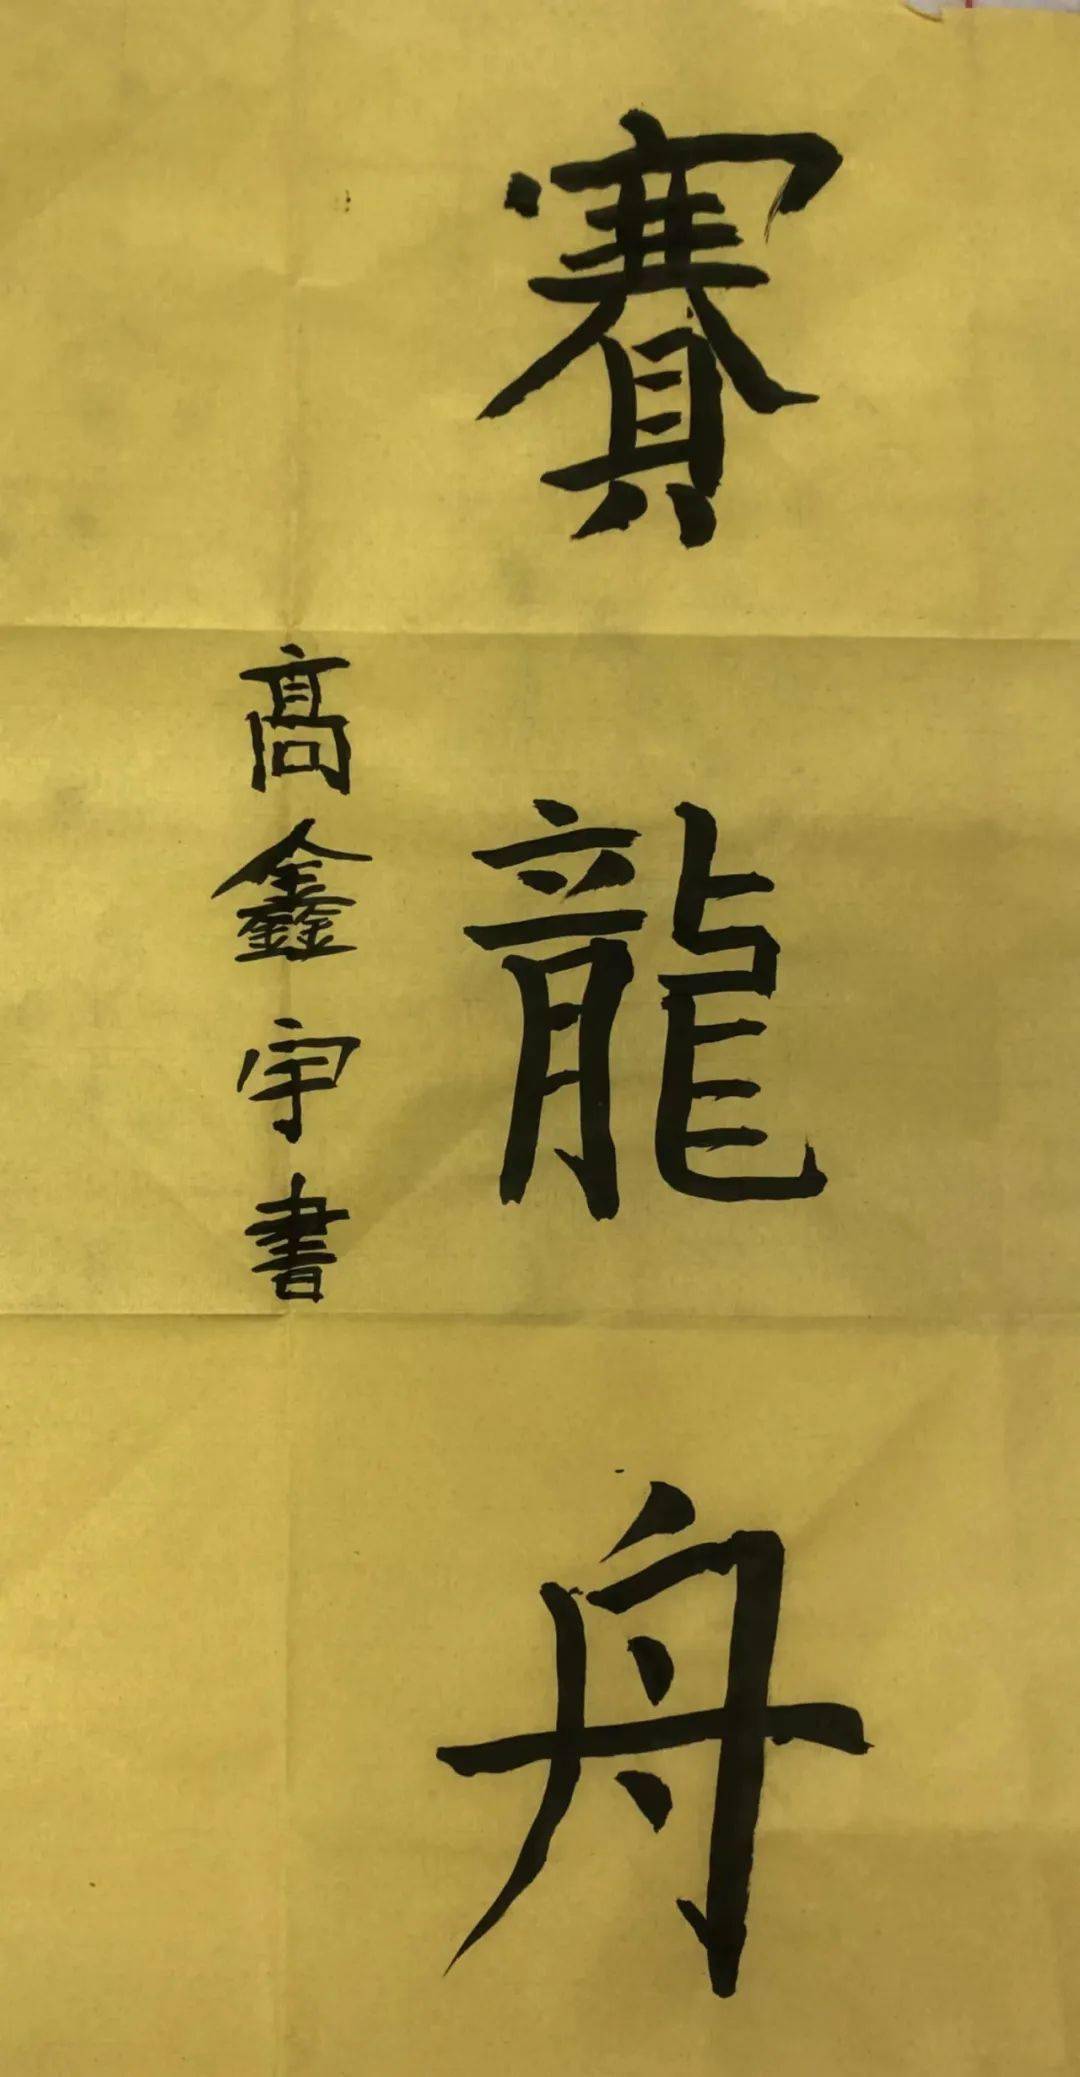 賽龍舟
髙鑫宇書